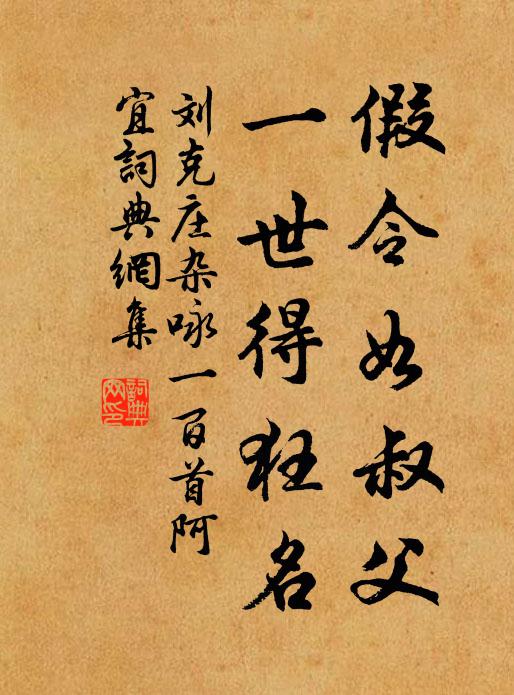 假令如叔父
一世得狂名
刘克庄杂咏一百首阿
宜詞典網集
詞典网印